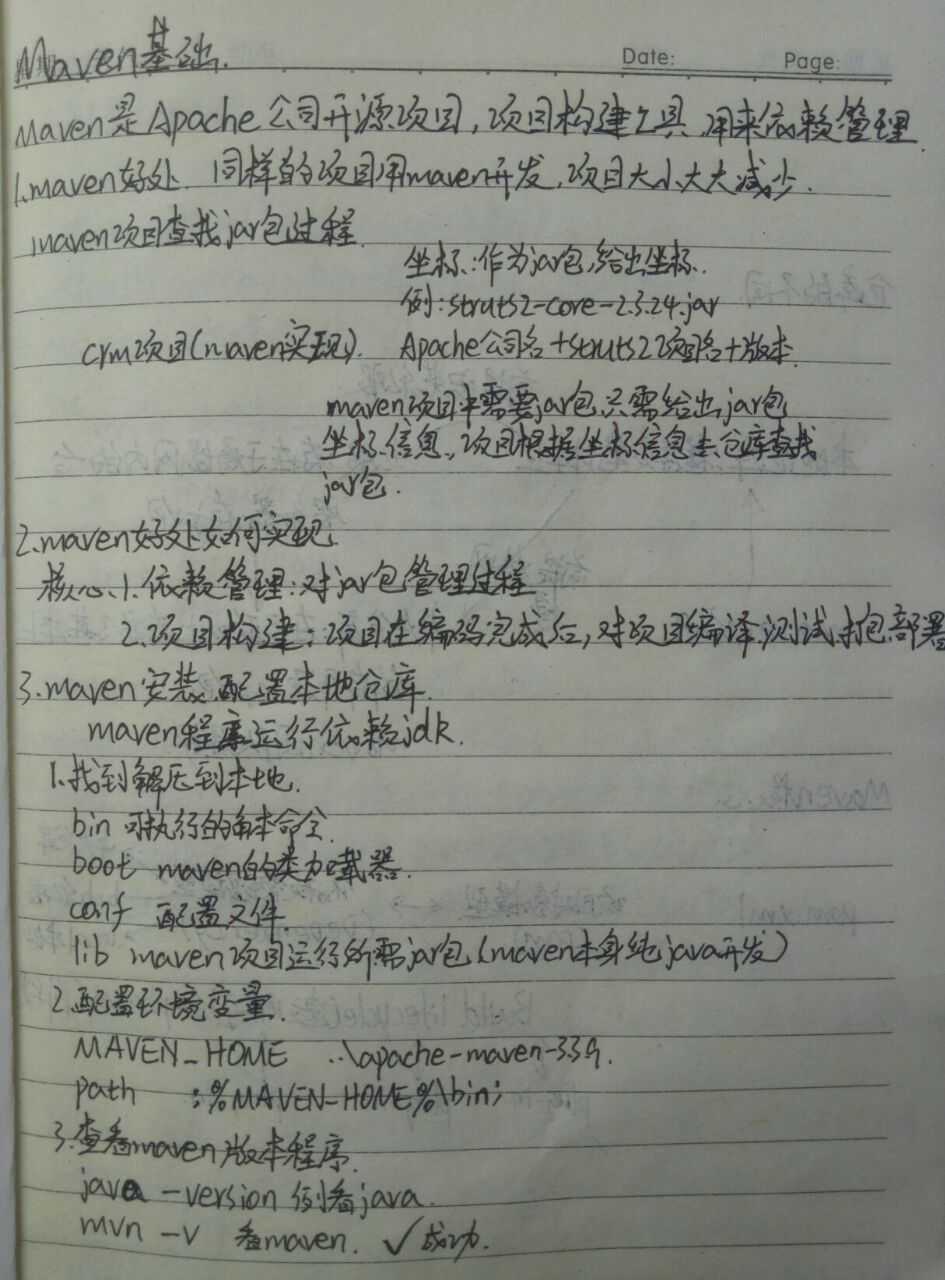 Maven基础.
Date: Page:
Maven是Apache公司开源项目,项目构建工具,用来依赖管理
1.maven好处 同样的项目用maven开发,项目大小大大减少.
maven项目查找jar包过程.
坐标:作为jar包,给出坐标.
例:struts2-core-2.3.24.jar
crm项目(maven实现). Apache公司名+struts2项目名+版本.
maven项目中需要jar包只需给出jar包
坐标信息,项目根据坐标信息去仓库查找
jar包.
2.maven好处如何实现
核心.1.依赖管理:对jar包管理过程
2.项目构建:项目在编码完成后,对项目编译.测试.打包.部署
3.maven安装.配置本地仓库.
maven程序运行依赖jdk.
1.找到解压到本地.
bin 可执行的脚本命令.
boot maven的类加载器.
conf 配置文件.
lib maven项目运行所需jar包(maven本身纯java开发)
2.配置环境变量.
MAVEN_HOME ..\apache-maven-339.
path :%MAVEN-HOME%\bin;
3.查看maven版本程序.
java -version 看java.
mvn -v 看maven. ✓成功.